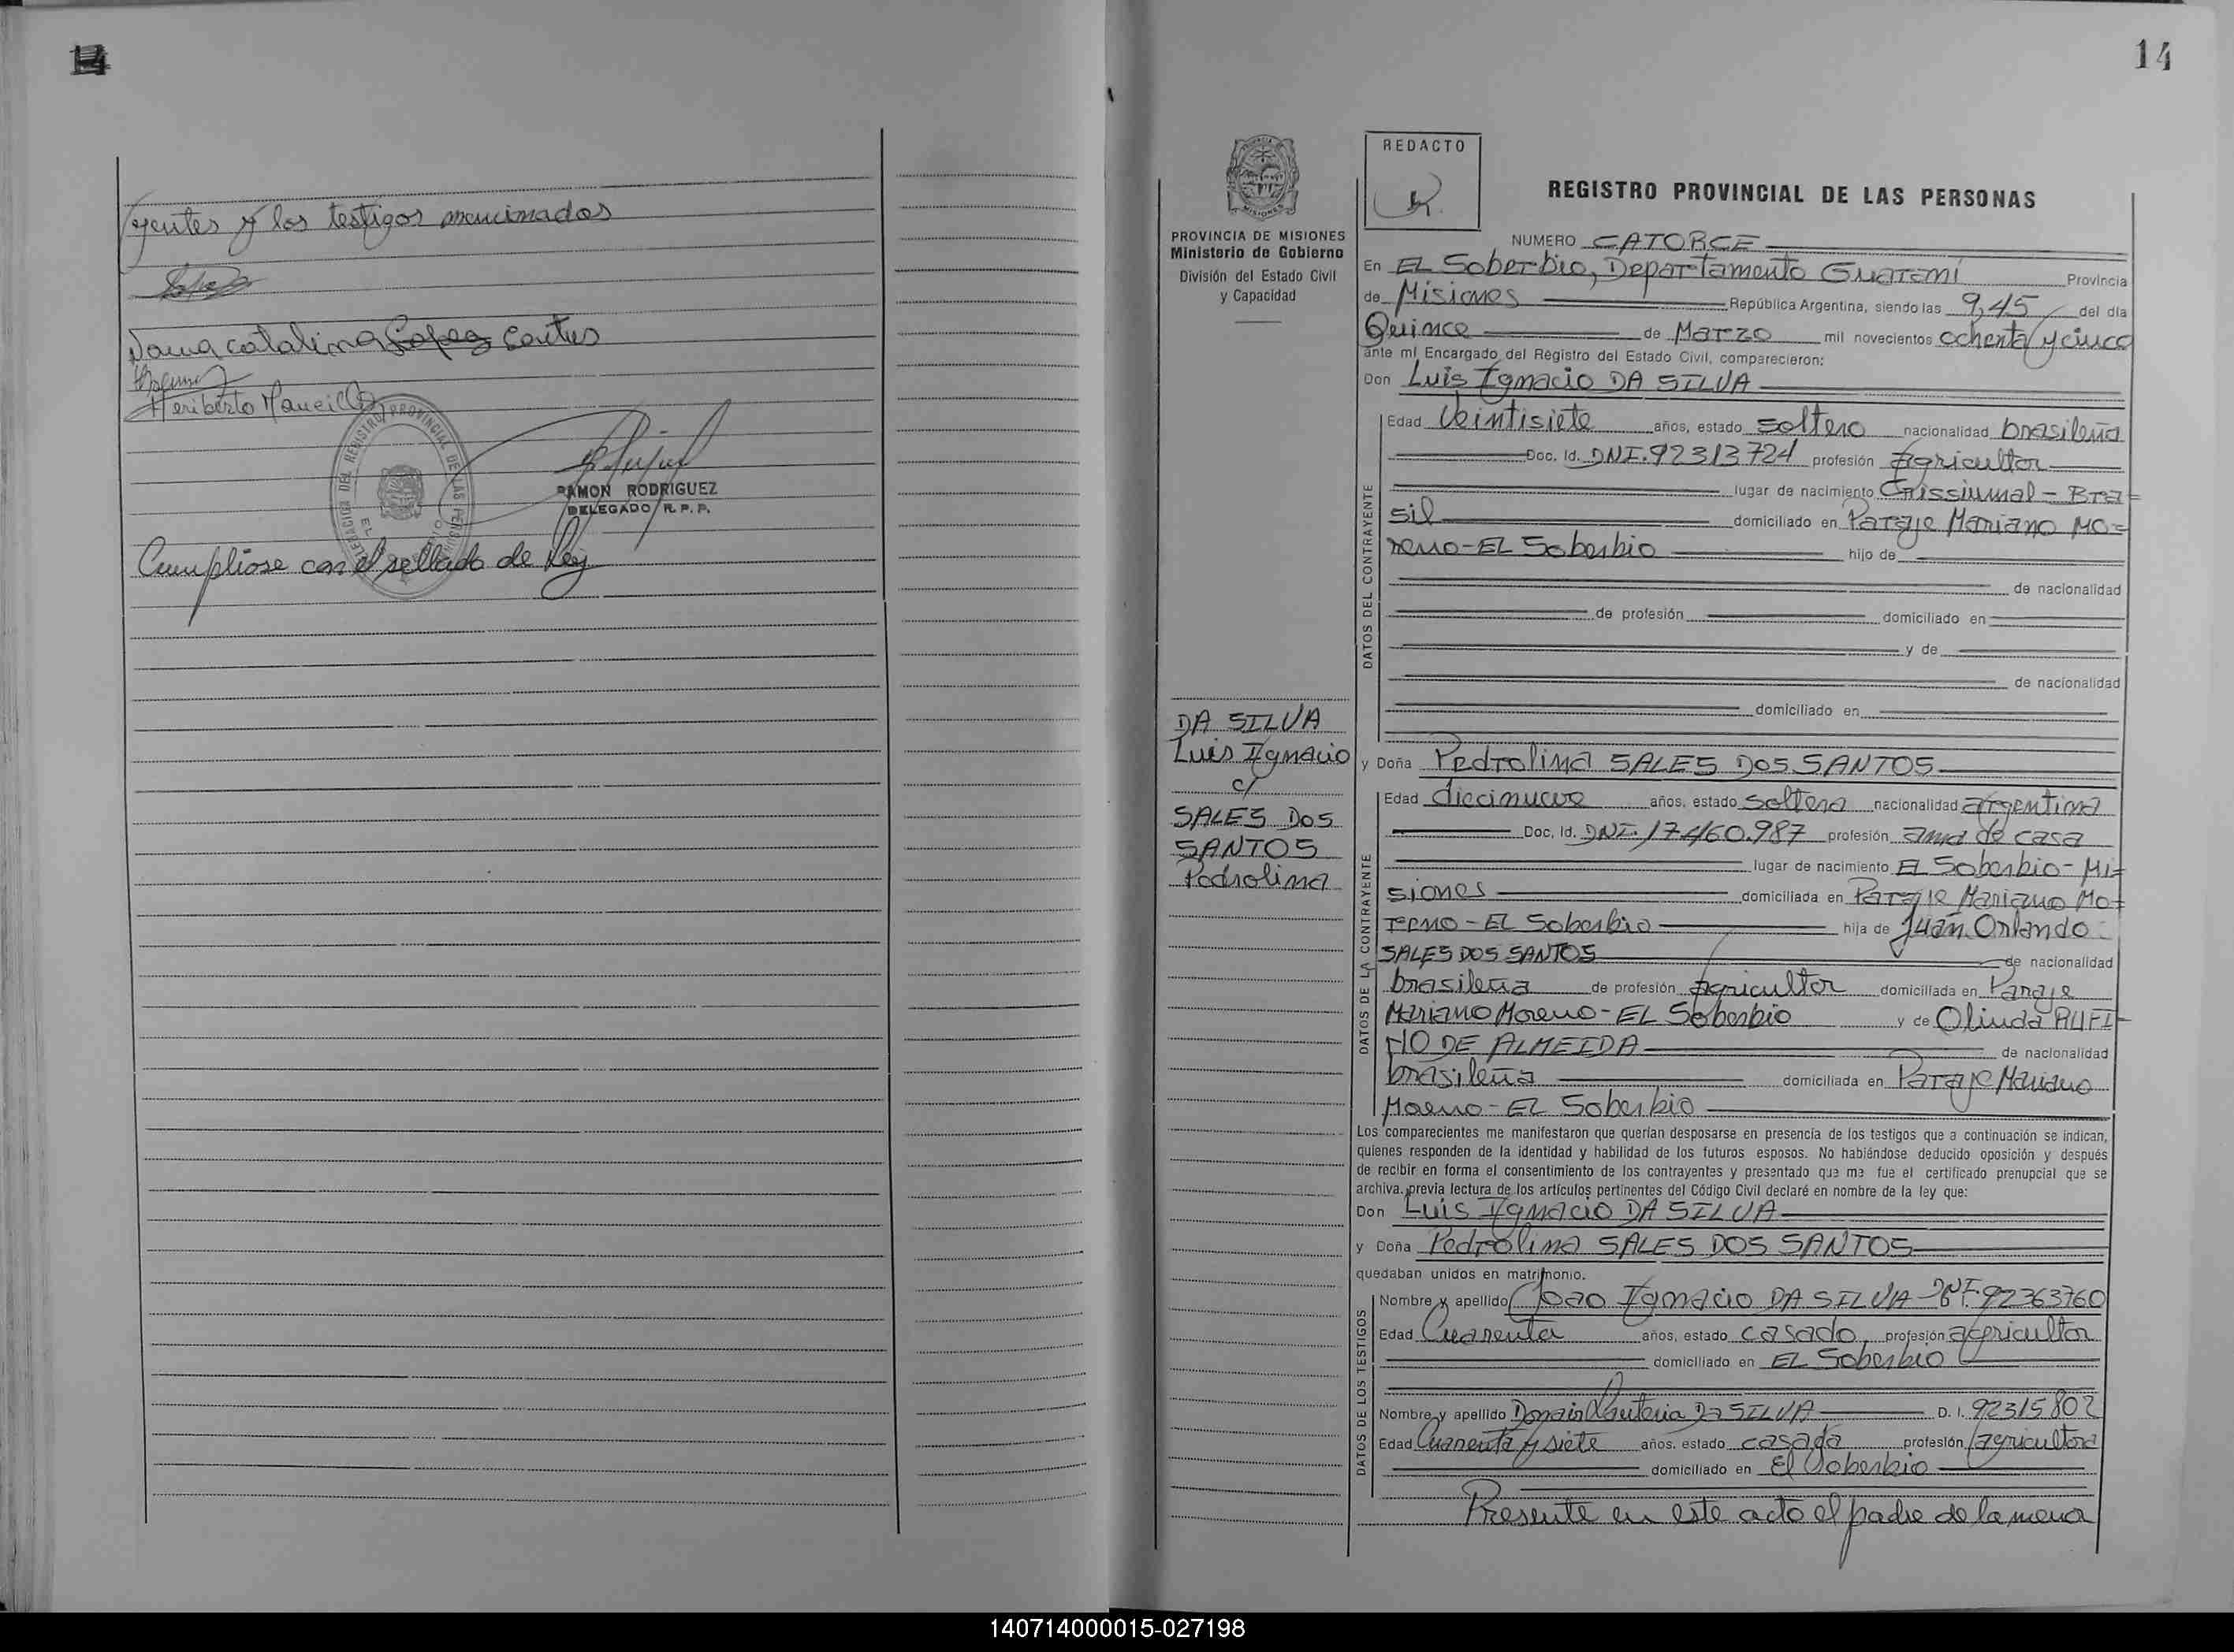 14
yentes y los testigos mencionados
Norma Catalina Lopez Cortes
Heriberto Mancilla
RAMON RODRIGUEZ
DELEGADO R. P. P.
Cumpliose con el sellado de Ley
14
REDACTO
REGISTRO PROVINCIAL DE LAS PERSONAS
PROVINCIA DE MISIONES
Ministerio de Gobierno
División del Estado Civil
y Capacidad
DA SILVA
Luis Ignacio
c/
SALES DOS
SANTOS
Pedrolina
NUMERO CATORCE
En EL Soberbio, Departamento Guaraní Provincia
de Misiones República Argentina, siendo las 9,45 del día
Quince de Marzo mil novecientos ochenta y cinco
ante mí Encargado del Registro del Estado Civil, comparecieron:
Don Luis Ignacio DA SILVA
DATOS DEL CONTRAYENTE
Edad Veintisiete años, estado soltero nacionalidad brasileña
Doc. Id. DNI. 92313724 profesión agricultor
lugar de nacimiento Crissiumal - Bra=
sil domiciliado en Paraje Mariano Mo=
reno - EL Soberbio hijo de
de nacionalidad
de profesión domiciliado en
y de
de nacionalidad
domiciliado en
y Doña Pedrolina SALES DOS SANTOS
DATOS DE LA CONTRAYENTE
Edad diecinueve años, estado soltera nacionalidad argentina
Doc. Id. DNI. 17.460.987 profesión ama de casa
lugar de nacimiento EL Soberbio - Mi=
siones domiciliada en Paraje Mariano Mo=
reno - EL Soberbio hija de Juan Orlando
SALES DOS SANTOS de nacionalidad
brasileña de profesión agricultor domiciliada en Paraje
Mariano Moreno - EL Soberbio y de Olinda RUFI-
NO DE ALMEIDA de nacionalidad
brasileña domiciliada en Paraje Mariano
Moreno - EL Soberbio
Los comparecientes me manifestaron que querían desposarse en presencia de los testigos que a continuación se indican,
quienes responden de la identidad y habilidad de los futuros esposos. No habiéndose deducido oposición y después
de recibir en forma el consentimiento de los contrayentes y presentado que me fue el certificado prenupcial que se
archiva. previa lectura de los artículos pertinentes del Código Civil declaré en nombre de la ley que:
Don Luis Ignacio DA SILVA
y Doña Pedrolina SALES DOS SANTOS
quedaban unidos en matrimonio.
DATOS DE LOS TESTIGOS
Nombre y apellido Joao Ignacio DA SILVA DNI. 92363760
Edad Cuarenta años, estado casado profesión agricultor
domiciliado en EL Soberbio
Nombre y apellido Lauteria DA SILVA D. I. 92315802
Edad Cuarenta y siete años. estado casada profesión agricultora
domiciliado en El Soberbio
Presente en este acto el padre de la menor
140714000015-027198